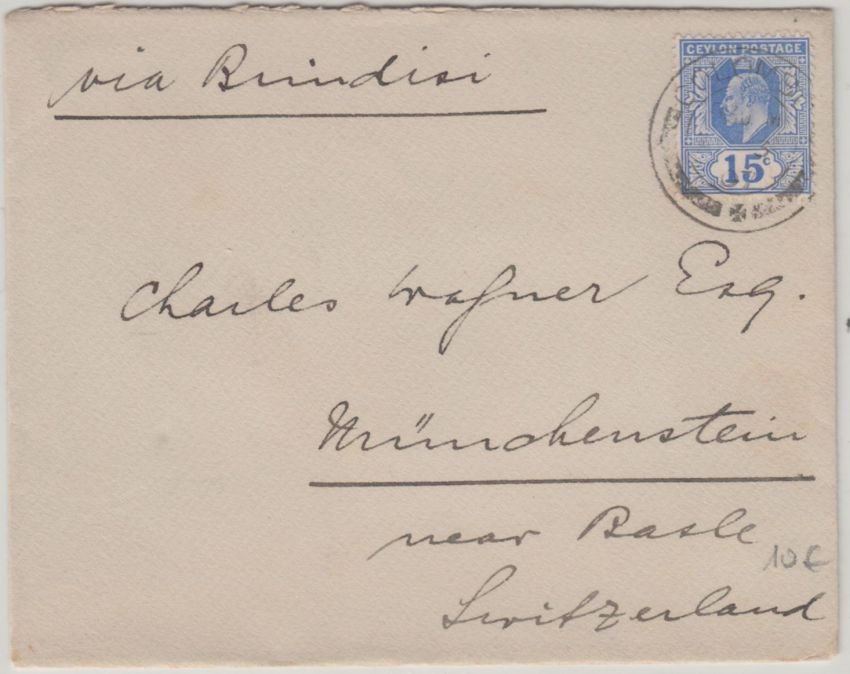 via Brindisi
CEYLON POSTAGE
15c
Charles Wagner Esq.
Münchenstein
near Basle
10 €
Switzerland